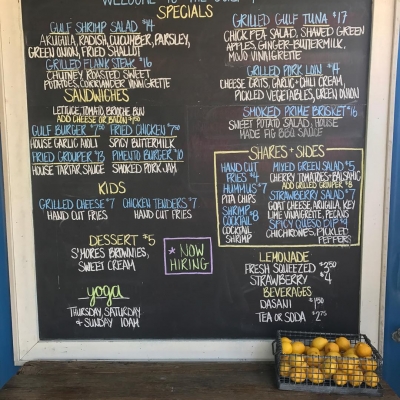 WELCOME TO THE
SPECIALS
GULF SHRIMP SALAD $14
ARUGULA, RADISH, CUCUMBER, PARSLEY,
GREEN ONION, FRIED SHALLOT
GRILLED FLANK STEAK $16
CHUTNEY ROASTED SWEET
POTATOES, CORRIANDER VINAIGRETTE
SANDWICHES
LETTUCE, TOMATO, BRIOCHE BUN
ADD CHEESE OR BACON $1.50
GULF BURGER $7.50
HOUSE GARLIC AIOLI
FRIED CHICKEN $7.50
SPICY BUTTERMILK
FRIED GROUPER $13
HOUSE TARTAR SAUCE
PIMENTO BURGER $10
SMOKED PORK JAM
KIDS
GRILLED CHEESE $7
HAND CUT FRIES
CHICKEN TENDERS $7
HAND CUT FRIES
DESSERT $5
S'MORES BROWNIES,
SWEET CREAM
* NOW
HIRING
yoga
THURSDAY, SATURDAY
& SUNDAY 10AM
GRILLED GULF TUNA $17
CHICK PEA SALAD, SHAVED GREEN
APPLES, GINGER-BUTTERMILK,
MOJO VINAIGRETTE
GRILLED PORK LOIN $14
CHEESE GRITS, GARLIC+CHILI CREAM,
PICKLED VEGETABLES, GREEN ONION
SMOKED PRIME BRISKET $16
SWEET POTATO SALAD, HOUSE
MADE FIG BBQ SAUCE
SHARES + SIDES
HAND CUT
FRIES $4
HUMMUS $7
PITA CHIPS
SHRIMP
COCKTAIL $8
COCKTAIL
SHRIMP
MIXED GREEN SALAD $5
CHERRY TOMATOES+BALSAMIC
ADD GRILLED GROUPER $8
STRAWBERRY SALAD $7
GOAT CHEESE, ARUGULA, KEY
LIME VINAIGRETTE, PECANS
SPICY QUESO DIP $9
CHICHRONES, PICKLED
PEPPERS
LEMONADE
FRESH SQUEEZED $2.50
STRAWBERRY $4
BEVERAGES
DASANI $1.50
TEA OR SODA $2.75